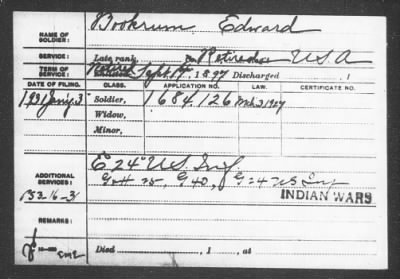 NAME OF SOLDIER: Bookrum, Edward
SERVICE: Late rank, Retired U.S.A
TERM OF SERVICE: Retired Sept. 17, 1897 Discharged , 1
DATE OF FILING. CLASS. APPLICATION NO. LAW. CERTIFICATE NO.
1931 Jan'y. 3 Soldier, 1684.126 Mch. 3 1927
Widow,
Minor,
ADDITIONAL SERVICES: E 24" U.S. Inf
G 40, G 24 US Inf
INDIAN WARS
REMARKS:
Died , 1 , at